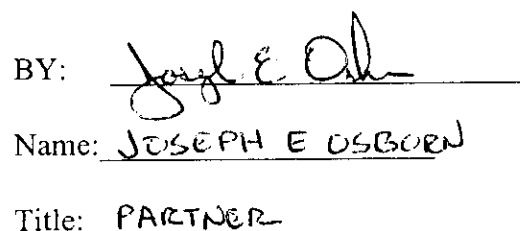 BY: Joseph E. Osborn
Name: JOSEPH E OSBORN
Title: PARTNER